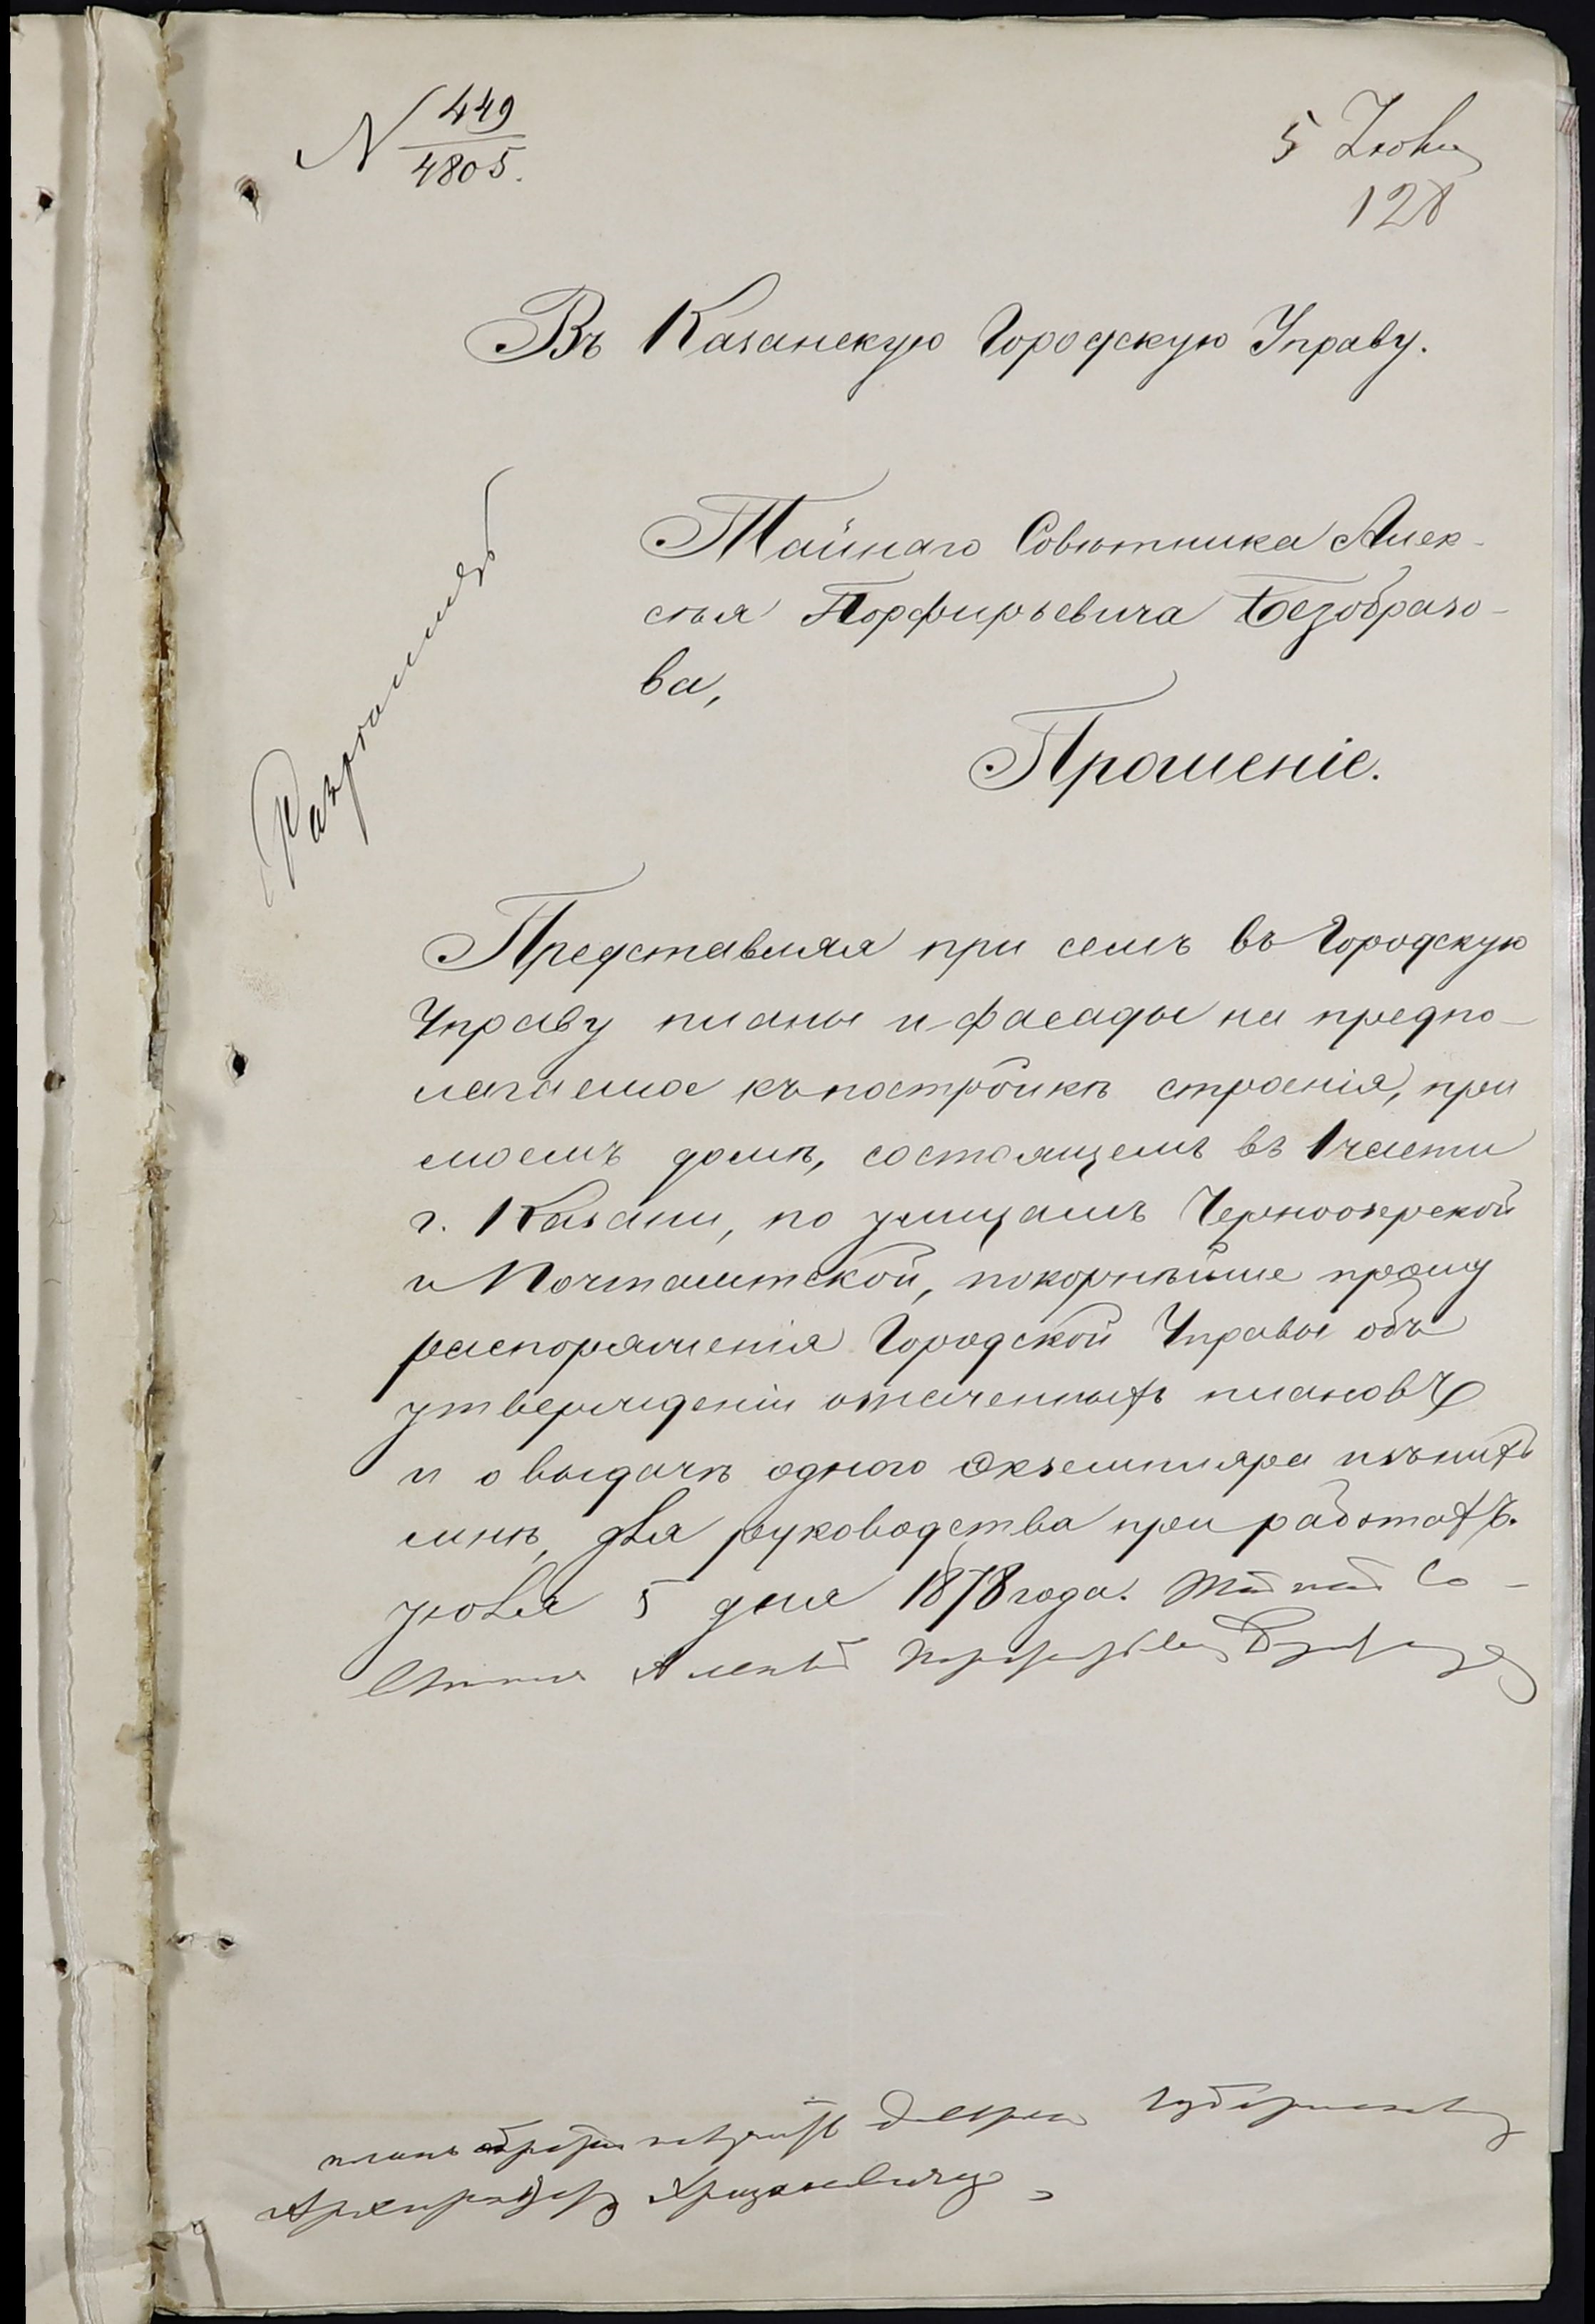 N 449
4805.
5 Іюля
128
Въ Казанскую Городскую Управу.
Разрешить
Тайнаго Совѣтника Алек-
сѣя Порфирьевича Безобразо-
ва,
Прошеніе.
Представляя при семъ въ Городскую
Управу планы и фасады на предпо-
лагаемое къ постройкѣ строенія, при
моемъ домѣ, состоящемъ въ 1 части
г. Казани, по улицамъ Черноозерской
и Почтамтской, покорнѣйше прошу
распоряженія Городской Управы объ
утвержденіи означенныхъ плановъ
и о выдачѣ одного экземпляра изъ нихъ
мнѣ, для руководства при работахъ.
Іюля 5 дня 1878 года. Тайный Со-
вѣтникъ Алексѣй Порфирьевичъ Безобразовъ
планъ